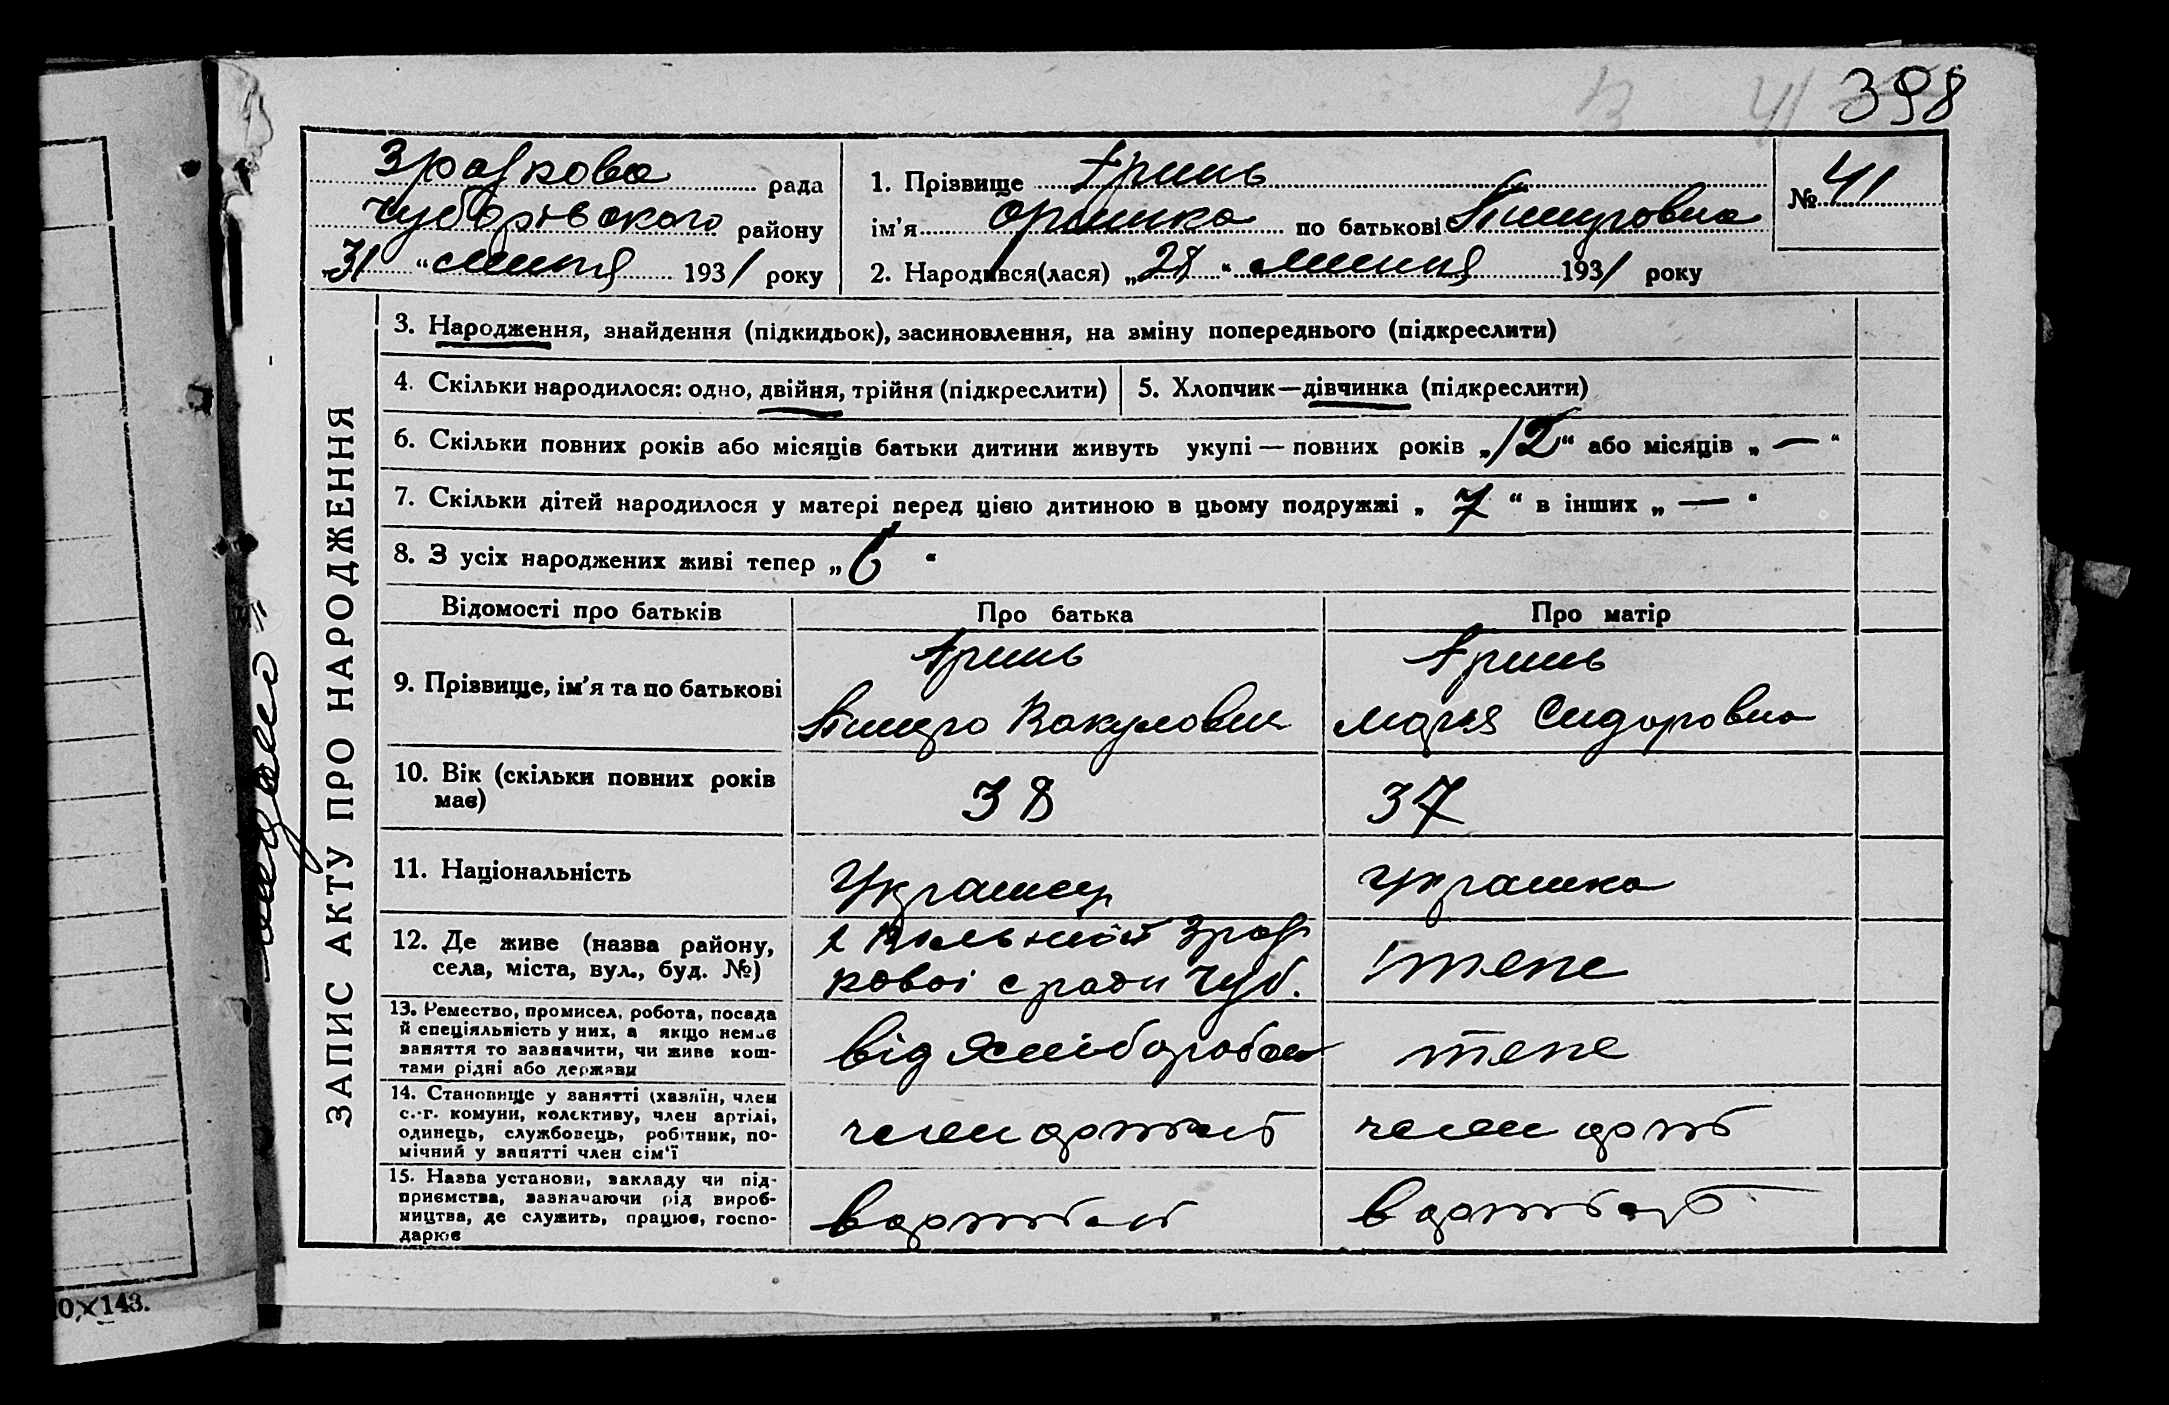 398
41
рада
Чубарівського району
„31“ липня 1931 року
1. Прізвище Гринь
ім’я по батькові
№ 41
2. Народився(лася) „28“ липня 1931 року
ЗАПИС АКТУ ПРО НАРОДЖЕННЯ
3. Народження, знайдення (підкидьок), засиновлення, на зміну попереднього (підкреслити)
4. Скільки народилося: одно, двійня, трійня (підкреслити)
5. Хлопчик—дівчинка (підкреслити)
6. Скільки повних років або місяців батьки дитини живуть укупі — повних років „12“ або місяців „—“
7. Скільки дітей народилося у матері перед цією дитиною в цьому подружжі „7“ в інших „—“
8. З усіх народжених живі тепер „6“
Відомості про батьків
Про батька
Про матір
9. Прізвище, ім’я та по батькові
Гринь
Вакулович
Гринь
Марія Сидоровна
10. Вік (скільки повних років
має)
38
37
11. Національність
Українець
Українка
12. Де живе (назва району,
села, міста, вул., буд. №)
кової с ради Чуб.
теж
13. Ремество, промисел, робота, посада
й спеціяльність у них, а якщо немає
заняття то зазначити, чи живе кош-
тами рідні або держави
від хліборобства
теж
14. Становище у занятті (хазяїн, член
с.-г. комуни, колективу, член артілі,
одинець, службовець, робітник, по-
мічний у занятті член сім’ї
член артілі
член артіл
15. Назва установи, закладу чи під-
приємства, зазначаючи рід вироб-
ництва, де служить, працює, госпо-
дарює
в артілі
в артілі
0×143.